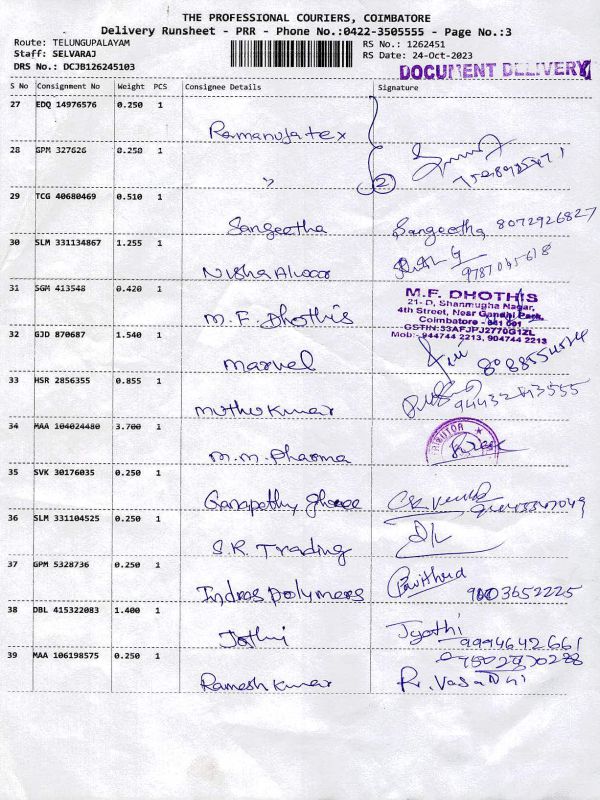 THE PROFESSIONAL COURIERS, COIMBATORE
Delivery Runsheet - PRR - Phone No.:0422-3505555 - Page No.:3
Route: TELUNGUPALAYAM RS No.: 1262451
Staff: SELVARAJ RS Date: 24-Oct-2023
DRS No.: DCJB126245103 DOCUMENT DELIVERY
S No Consignment No Weight PCS Consignee Details Signature
27 EDQ 14976576 0.250 1
Ramanuja tex
28 GPM 327626 0.250 1
" 2
29 TCG 40680469 0.510 1
Sangeetha Sangeetha 8072926827
30 SLM 331134867 1.255 1
Nisha Alwar
31 SGM 413548 0.420 1
M.F. Dhothis
M.F. DHOTHIS
21-D, Shanmugha Nagar,
4th Street, Near Gandhi Park,
Coimbatore - 641 001
GSTIN:33AFJPJ2770G1ZL
Mob: 944744 2213, 904744 2213
32 GJD 870687 1.540 1
Marvel
33 HSR 2856355 0.855 1
Muthu Kumar
34 MAA 104024480 3.700 1
M.M. Pharma
35 SVK 30176035 0.250 1
Ganapathy ghee
36 SLM 331104525 0.250 1
S.R. Trading
37 GPM 5328736 0.250 1
Indras Polymers Pavithra 9003652225
38 DBL 415322083 1.400 1
Jothi Jyothi 9994642661
39 MAA 106198575 0.250 1
Ramesh Kumar